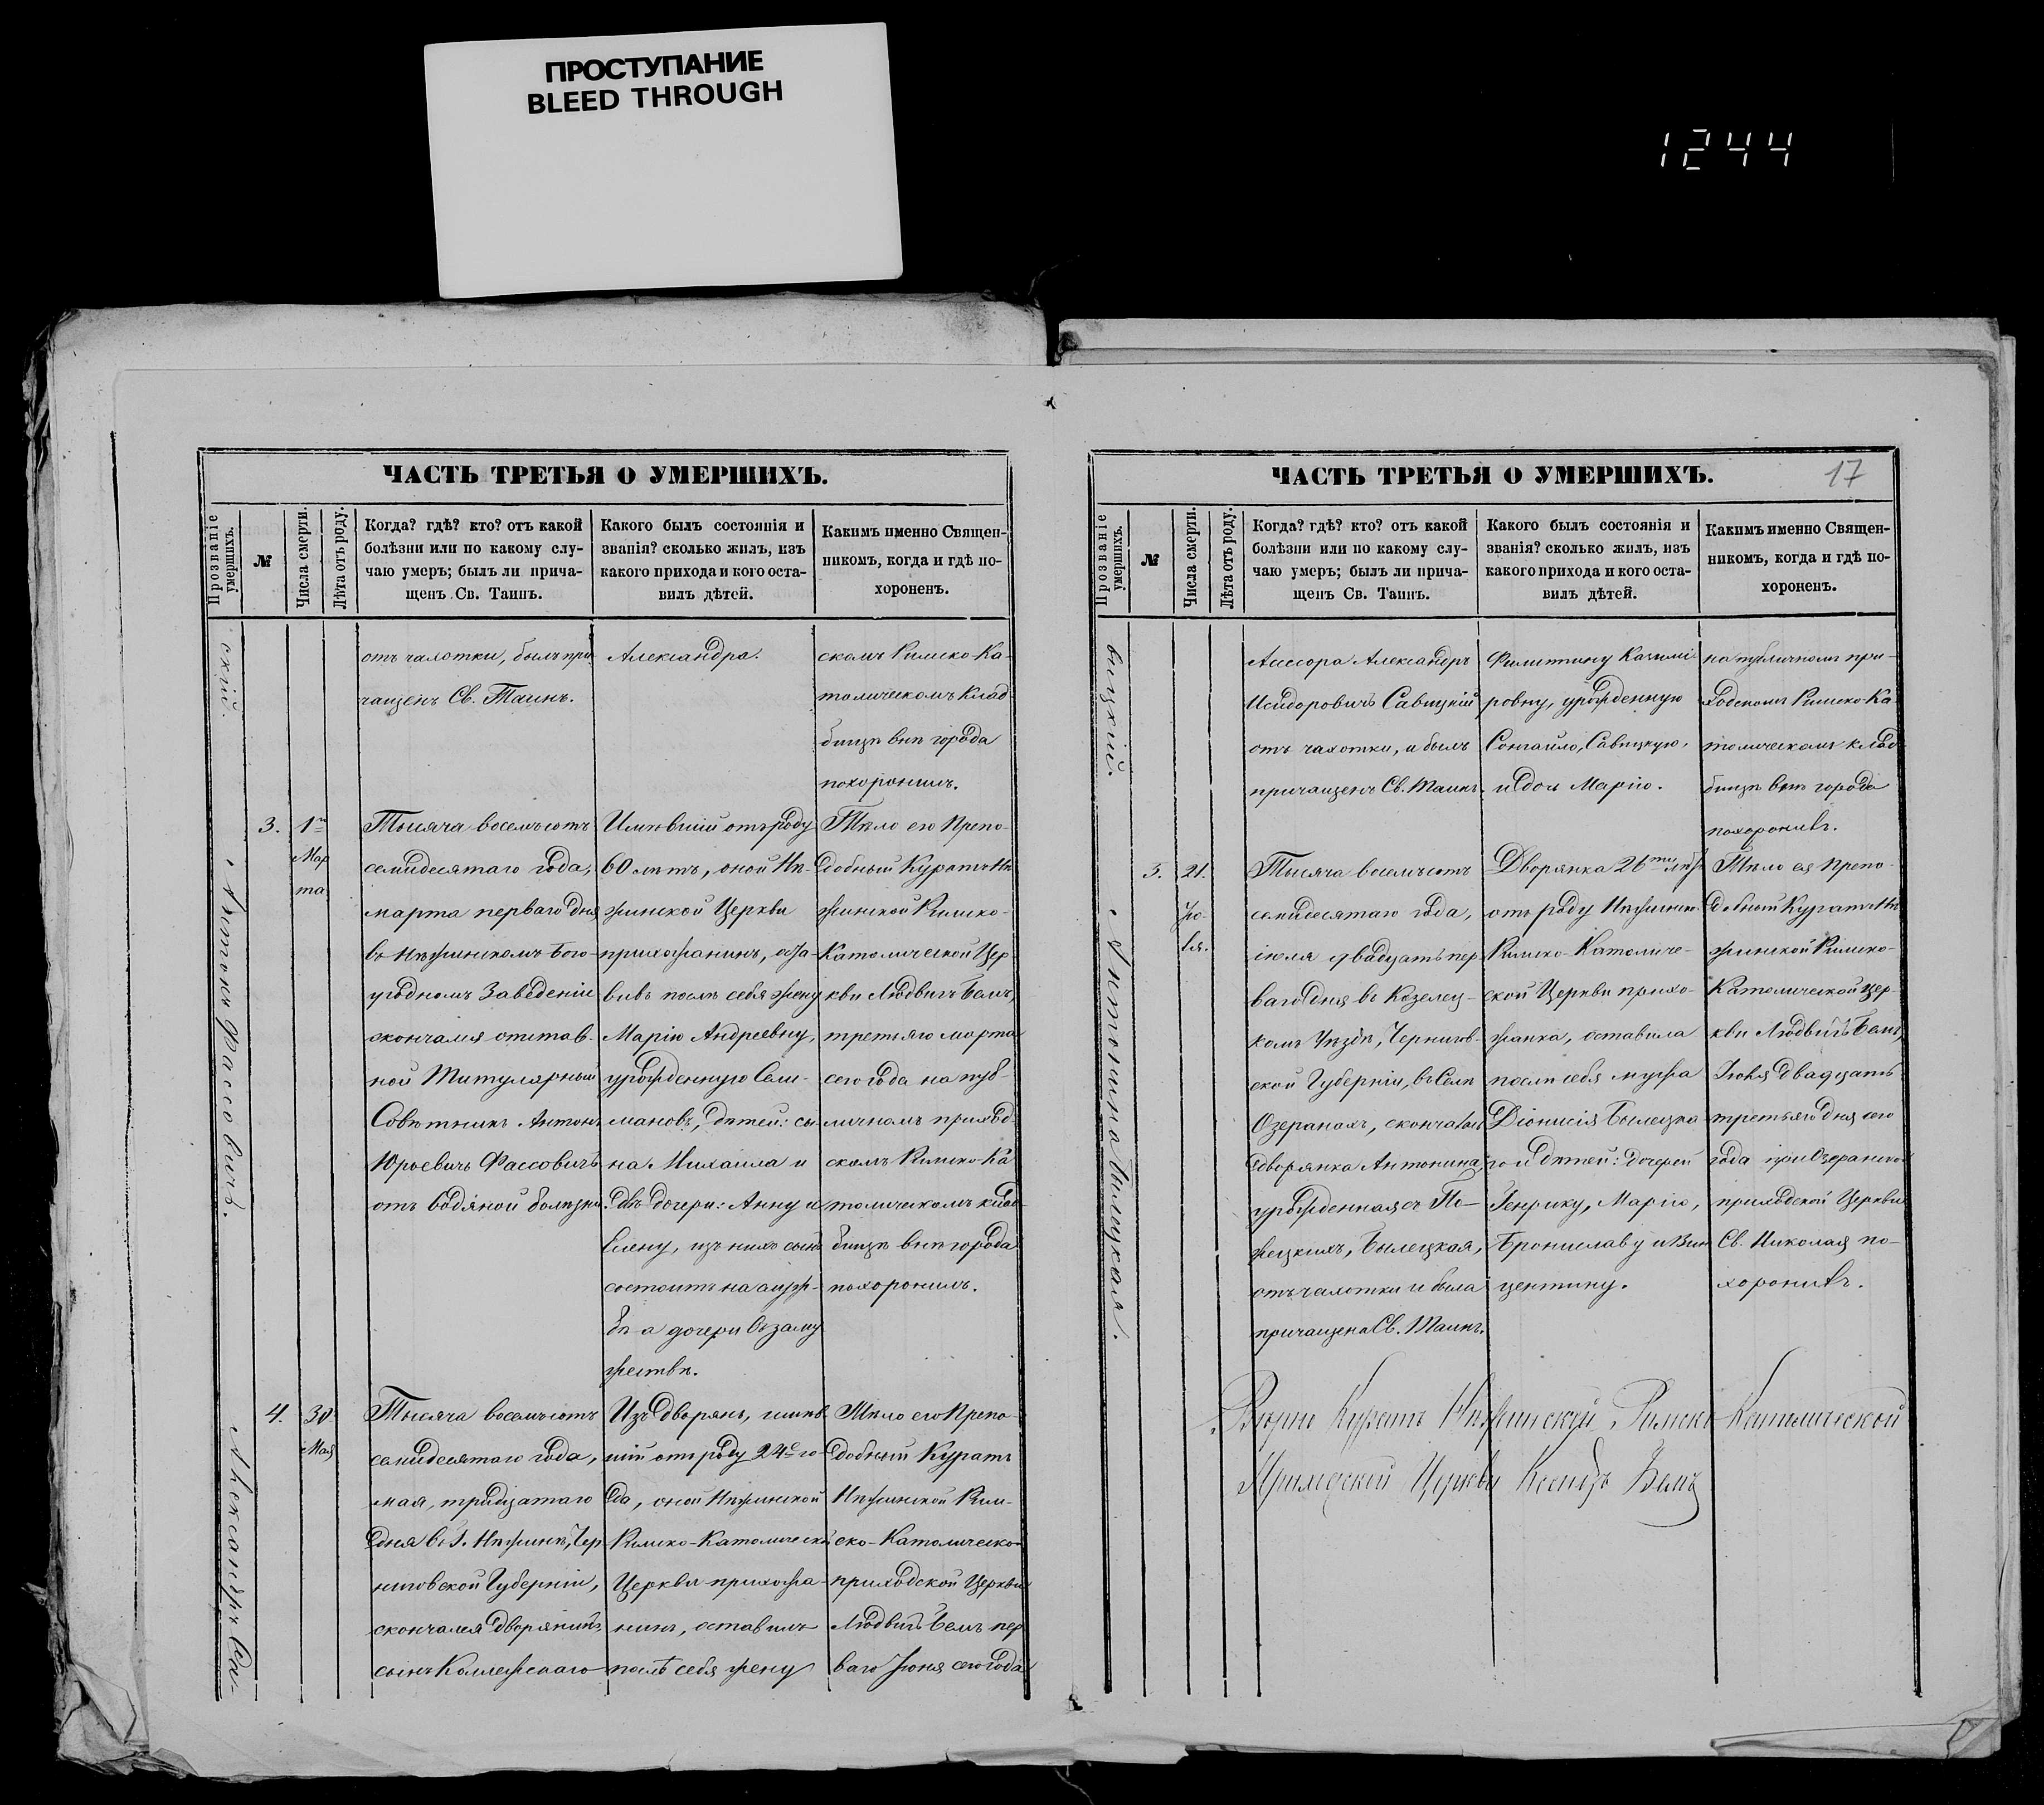 ПРОСТУПАНИЕ
BLEED THROUGH
1244
ЧАСТЬ ТРЕТЬЯ О УМЕРШИХЪ.
Прозваніе умершихъ.
№
Числа смерти.
Лѣта отъ роду.
Когда? гдѣ? кто? отъ какой
болѣзни или по какому слу-
чаю умеръ; былъ ли прича-
щенъ Св. Таинъ.
Какого былъ состоянія и
званія? сколько жилъ, изъ
какого прихода и кого оста-
вилъ дѣтей.
Какимъ именно Священ-
никомъ, когда и гдѣ по-
хороненъ.
скій.
отъ чахотки, былъ при-
чащенъ Св. Таинъ.
Александра.
скомъ Римско-Ка-
толическомъ клад-
бищѣ внѣ города
похоронилъ.
Антонъ Фассовичъ.
3.
1го
Мар
та
Тысяча восемьсотъ
семидесятаго года,
марта перваго дня
въ Нѣжинскомъ Бого-
угодномъ Заведеніи
скончался отстав-
ной Титулярный
Совѣтникъ Антонъ
Юрьевичъ Фассовичъ
отъ водяной болѣзни
Имѣвшій отъ роду
60 лѣтъ, оной Нѣ-
жинской Церкви
прихожанинъ, оста-
вивъ послѣ себя жену
Марію Андреевну,
урожденную Сели-
мановъ, дѣтей: сы-
на Михаила и
двѣ дочери: Анну и
Елену, изъ нихъ сынъ
состоитъ на служ-
бѣ а дочери въ заму
жествѣ.
Тѣло его Препо-
добный Куратъ Нѣ-
жинской Римско-
Католической Цер-
кви Людвигъ Бемъ,
третьяго марта
сего года на пуб-
личномъ приход-
скомъ Римско-Ка
толическомъ клад-
бищѣ внѣ города
похоронилъ.
Александръ Са-
4.
30
Мая
Тысяча восемьсотъ
семидесятаго года,
мая, тридцатаго
дня въ г. Нѣжинѣ, Чер-
ниговской Губерніи,
скончался дворянинъ,
сынъ Коллежскаго
Изъ дворянъ, имѣв-
шій отъ роду 24е го-
да, оной Нѣжинской
Римско-Католической
Церкви прихожа-
нинъ, оставилъ
послѣ себя жену
Тѣло его Препо-
добный Куратъ
Нѣжинской Рим-
ско-Католической
приходской Церкви
Людвигъ Бемъ пер
ваго Іюня сего года
ЧАСТЬ ТРЕТЬЯ О УМЕРШИХЪ.
17
Прозваніе умершихъ.
№
Числа смерти.
Лѣта отъ роду.
Когда? гдѣ? кто? отъ какой
болѣзни или по какому слу-
чаю умеръ; былъ ли прича-
щенъ Св. Таинъ.
Какого былъ состоянія и
званія? сколько жилъ, изъ
какого прихода и кого оста-
вилъ дѣтей.
Какимъ именно Священ-
никомъ, когда и гдѣ по-
хороненъ.
вицкій.
Ассора Александръ
Исидоровичъ Савицкій
отъ чахотки, и былъ
причащенъ Св. Таинъ.
Филитину Казимі-
ровну, урожденную
Сонгайло, Савицкую,
и дочь Марію.
на публичномъ при-
ходскомъ Римско-Ка
толическомъ клад-
бищѣ внѣ города
похоронивъ.
Антонина Былецкая.
5.
21.
Ію-
ля.
Тысяча восемьсотъ
семидесятаго года,
іюля двадцать пер-
ваго дня въ Козелец-
комъ Уѣздѣ, Чернигов-
ской Губерніи, въ Селѣ
Озеранахъ, скончалась
дворянка Антонина,
урожденная съ По-
жецкихъ, Былецкая,
отъ чахотки и была
причащена Св. Таинъ.
Дворянка 26ти лѣтъ
отъ роду Нѣжинс.
Римско-Католиче-
ской Церкви прихо-
жанка, оставила
послѣ себя мужа
Діонисія Былецка-
го и дѣтей: дочерей
Генрику, Марію,
Брониславу и Вин
центину.
Тѣло ея Препо-
добный Куратъ Нѣ
жинской Римско-
Католической Цер-
кви Людвигъ Бемъ,
Іюля двадцать
третьяго дня сего
года при Озеранской
приходской Церкви
Св. Николая по-
хоронивъ.
Куратъ Нѣжинской Римско Католической
Приходской Церкви Ксендзъ Бемъ